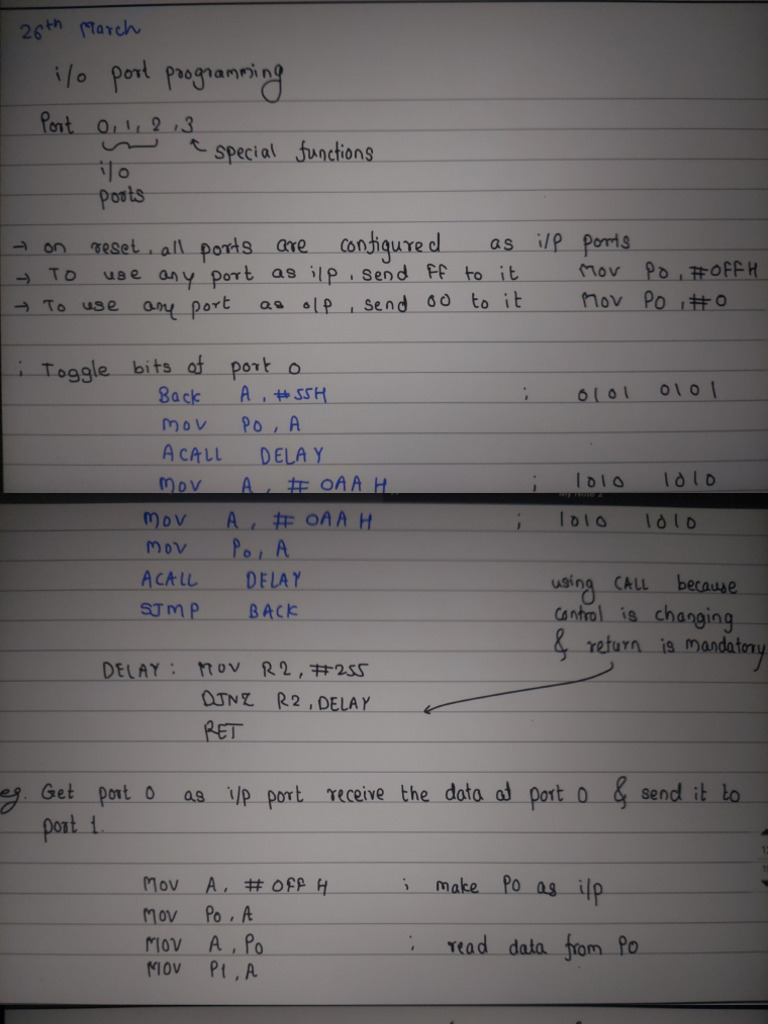 26th March
i/o port programming
Port 0, 1, 2, 3
special functions
i/o
ports
→ on reset, all ports are configured as i/p ports
→ To use any port as i/p, send FF to it MOV P0, #0FFH
→ To use any port as o/p, send 00 to it MOV P0, #0
; Toggle bits of port 0
Back A, #55H ; 0101 0101
MOV P0, A
ACALL DELAY
MOV A, #0AAH ; 1010 1010
MOV A, #0AAH ; 1010 1010
MOV P0, A
ACALL DELAY
SJMP BACK
using CALL because
control is changing
& return is mandatory
DELAY: MOV R2, #255
DJNZ R2, DELAY
RET
eg. Get port 0 as i/p port receive the data at port 0 & send it to
port 1.
MOV A, #0FFH ; make P0 as i/p
MOV P0, A
MOV A, P0 ; read data from P0
MOV P1, A